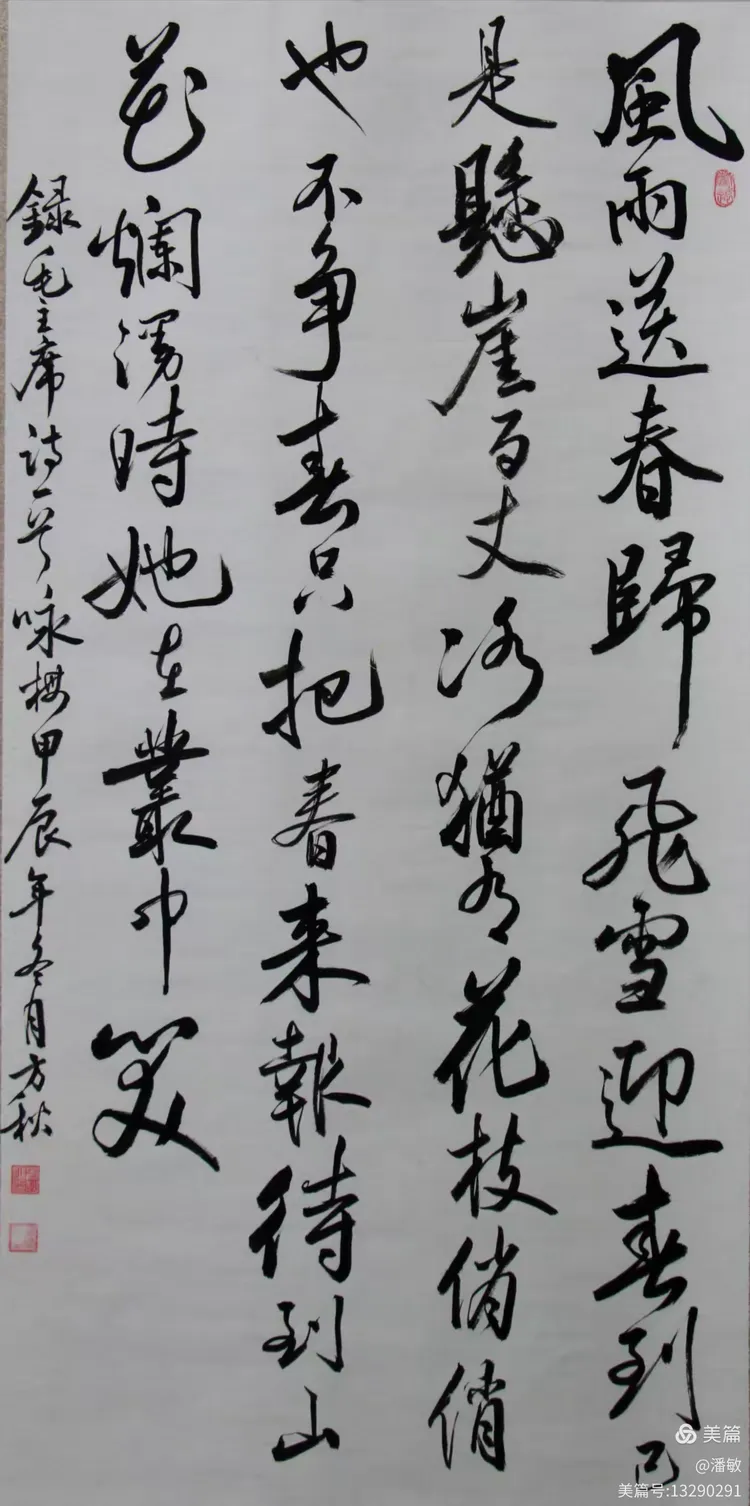 風雨送春歸飛雪迎春到已
是懸崖百丈冰猶有花枝俏俏
也不争春只把春來報待到山
花爛漫時她在叢中笑
錄毛主席诗一首咏梅甲辰年冬月方秋
美篇
@潘敏
美篇号:13290291